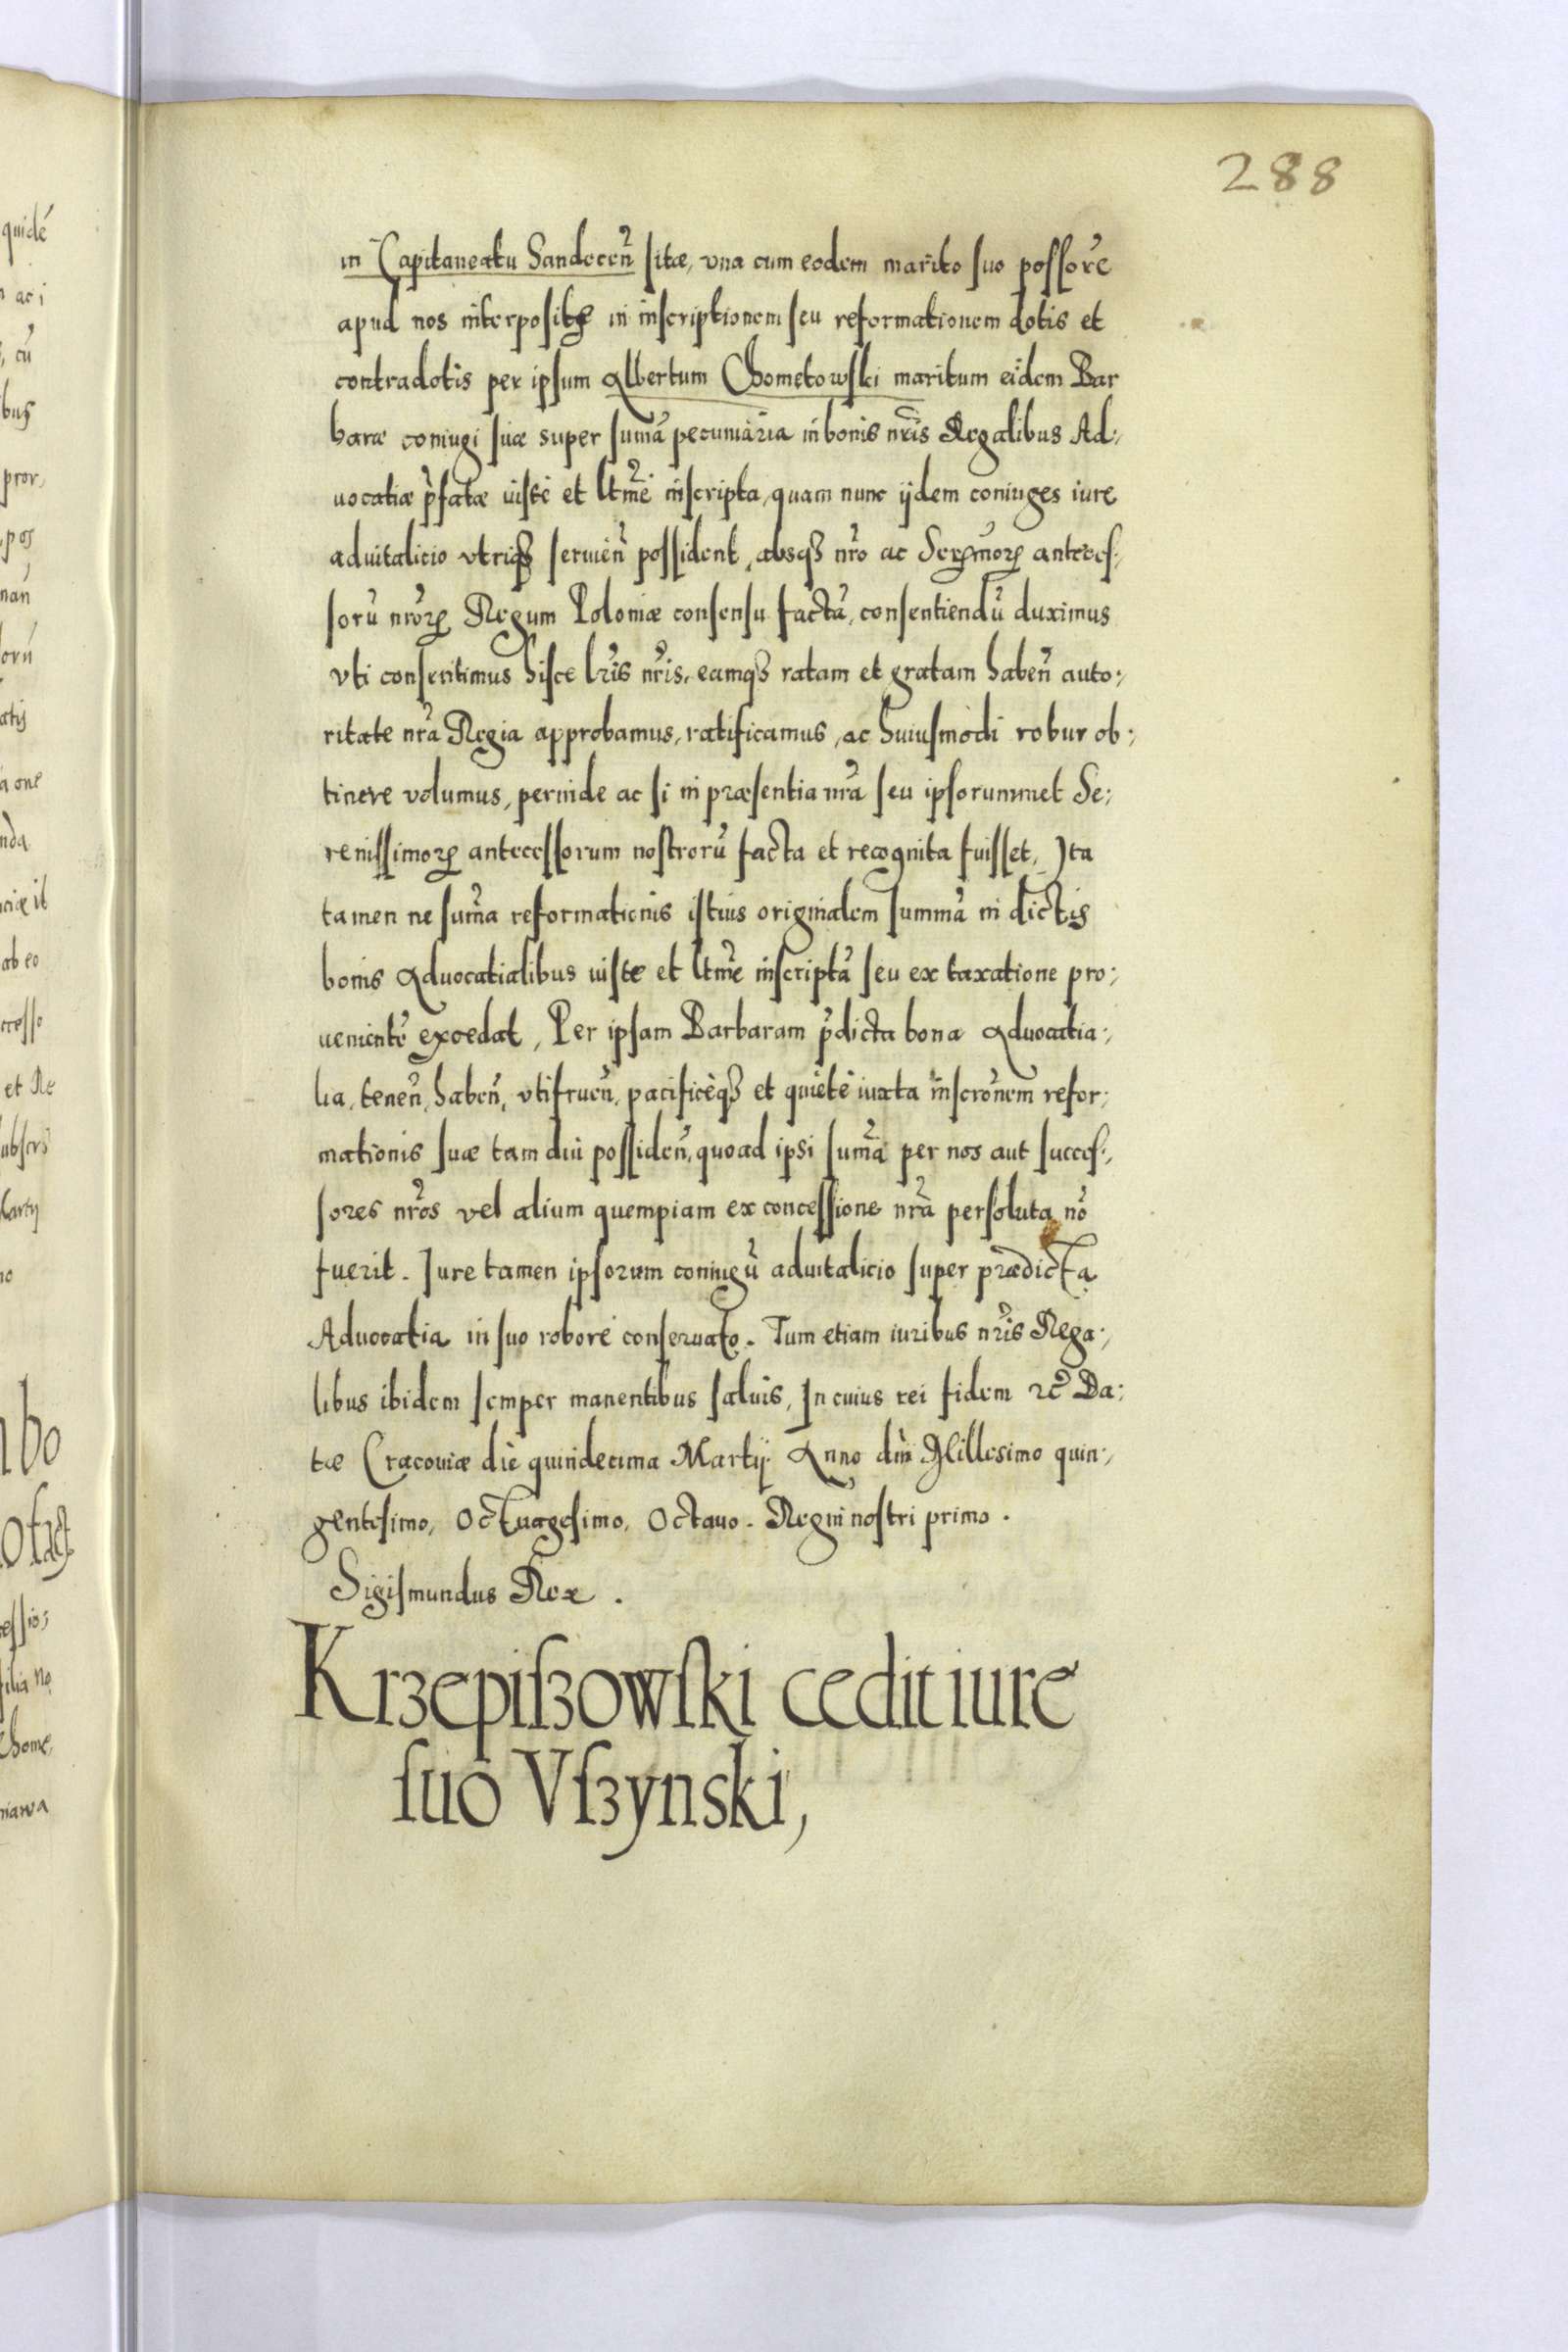 288
in Capitaneatu Sandecen̄ sitæ, vna cum eodem marito suo possore
apud nos interpositę in inscriptionem seu reformationem dotis et
contradotis per ipsum Albertum Chometowski maritum eidem Bar
baræ coniugi suæ super sum̄a pecuniaria in bonis nr̄is Regalibus Ad:,
uocatiæ p̄fatæ iuste et ltm̄e inscripta, quam nunc ijdem coniuges iure
aduitalicio vtriqȝ seruien̄ possident, absqȝ nr̄o ac Ser̄moꝝ anteces:,
sorū nr̄oꝝ Regum Poloniæ consensu factā, consentiendū duximus
vti consentimus hisce lr̄is nr̄is, eamqȝ ratam et gratam haben̄ auto:,
ritate nr̄a Regia approbamus, ratificamus, ac huiusmodi robur ob:,
tinere volumus, perinde ac si in præsentia nr̄a seu ipsorummet Se:,
renissimoꝝ antecessorum nostrorū facta et recognita fuisset, Ita
tamen ne sum̄a reformationis istius originalem summā in dictis
bonis Aduocatialibus iuste et ltm̄e inscriptā seu ex taxatione pro:,
uenientē excedat, Per ipsam Barbaram p̄dicta bona Aduocatia:,
lia, tenen̄, haben̄, vtifruen̄, pacificèqȝ et quietè iuxta inscrōnem refor:,
mationis suæ tam diu possiden̄, quoad ipsi sum̄a per nos aut succes:,
sores nr̄os vel alium quempiam ex concessione nr̄a persoluta nō
fuerit. Iure tamen ipsorum coniugū aduitalicio super prædicta
Aduocatia in suo robore conseruato. Tum etiam iuribus nr̄is Rega:,
libus ibidem semper manentibus saluis, In cuius rei fidem ꝛc̄ Da:,
tæ Cracouiæ die quindecima Martij Anno dn̄i Millesimo quin:,
gentesimo, Octuagesimo, Octauo. Regni nostri primo.
Sigismundus Rex.
Krzepiszowski cedit iure
suo Vszynski,